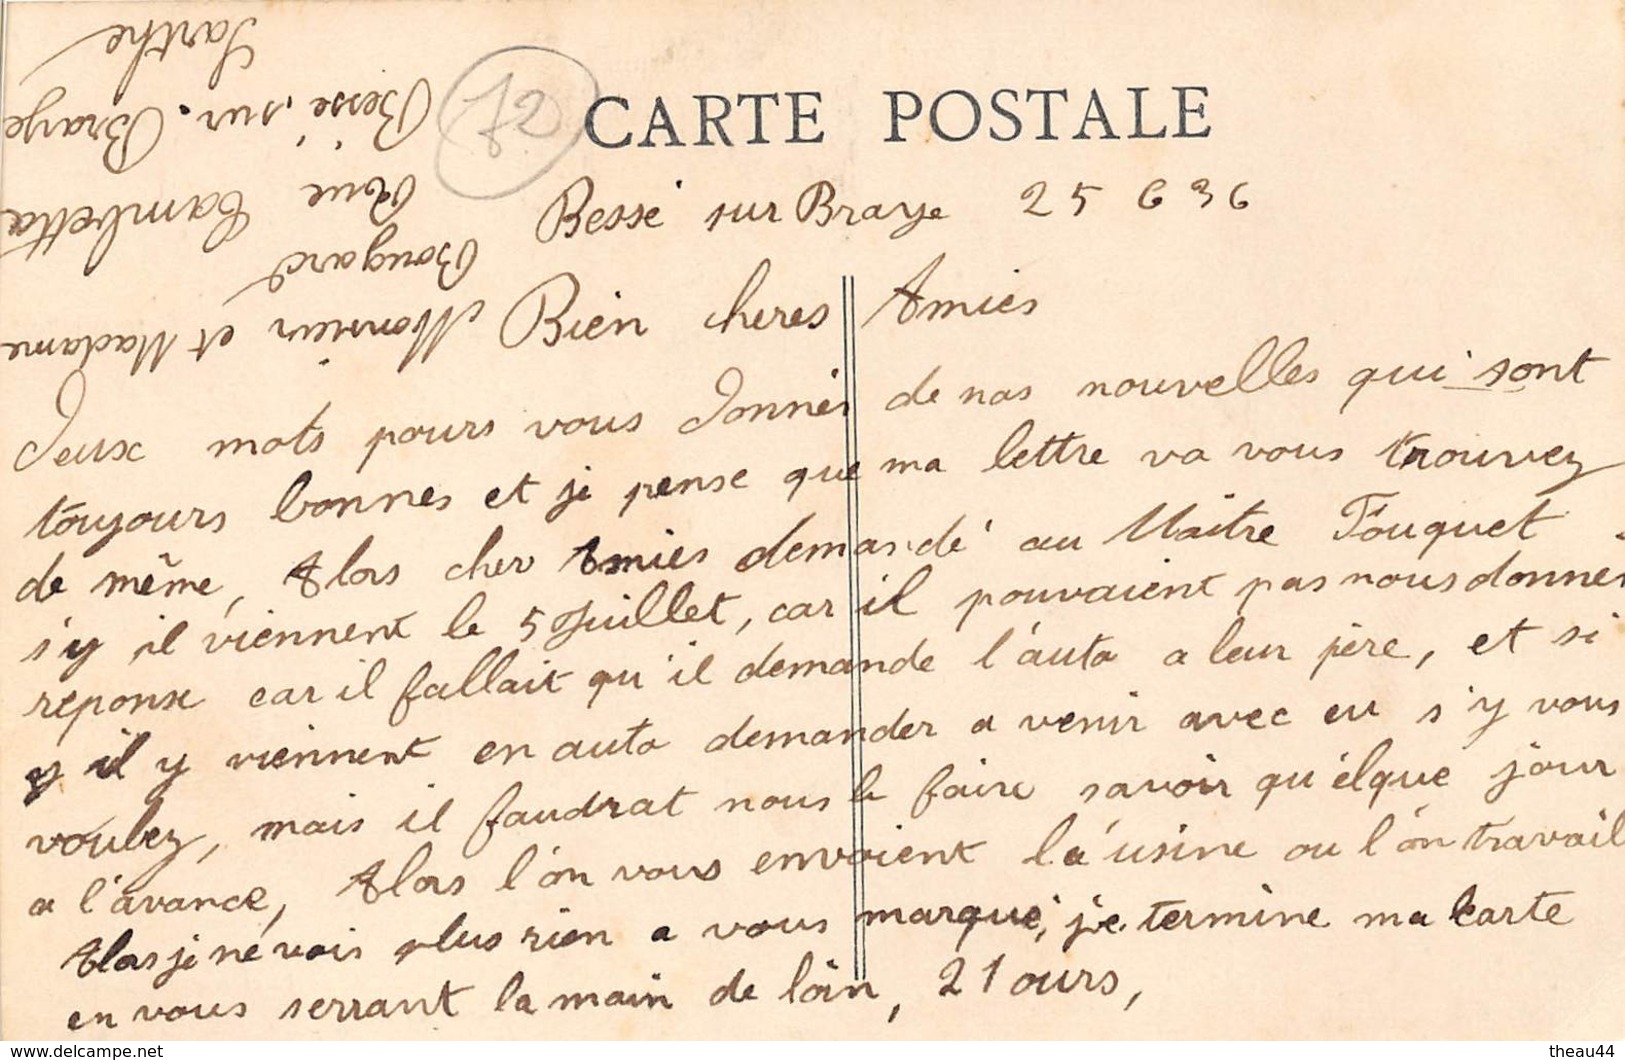 CARTE POSTALE
72
Monsieur et Madame
Bougard
Rue Gambetta
Bessé, sur. Braye
Sarthe
Bessé sur Braye 25 6 36
Bien cheres Amies
Deux mots pours vous donner de nos nouvelles qui sont
toujours bonnes et je pense que ma lettre va vous trouvez
de même, Alors cher Amies demandé au Maitre Fouquet
s'y il viennent le 5 Juillet, car il pouvaient pas nous donner
reponse car il fallait qu'il demande l'auto a leur père, et si
y il y viennent en auto demander a venir avec eu s'y vous
voulez, mais il faudrat nous le faire savoir qu'élque jour
a l'avance, Alors l'on vous envoient la usine ou l'on travail
Alors je ne vois plus rien a vous marqué, je termine ma carte
en vous serrant la main de loin, 21 ours,
theau44